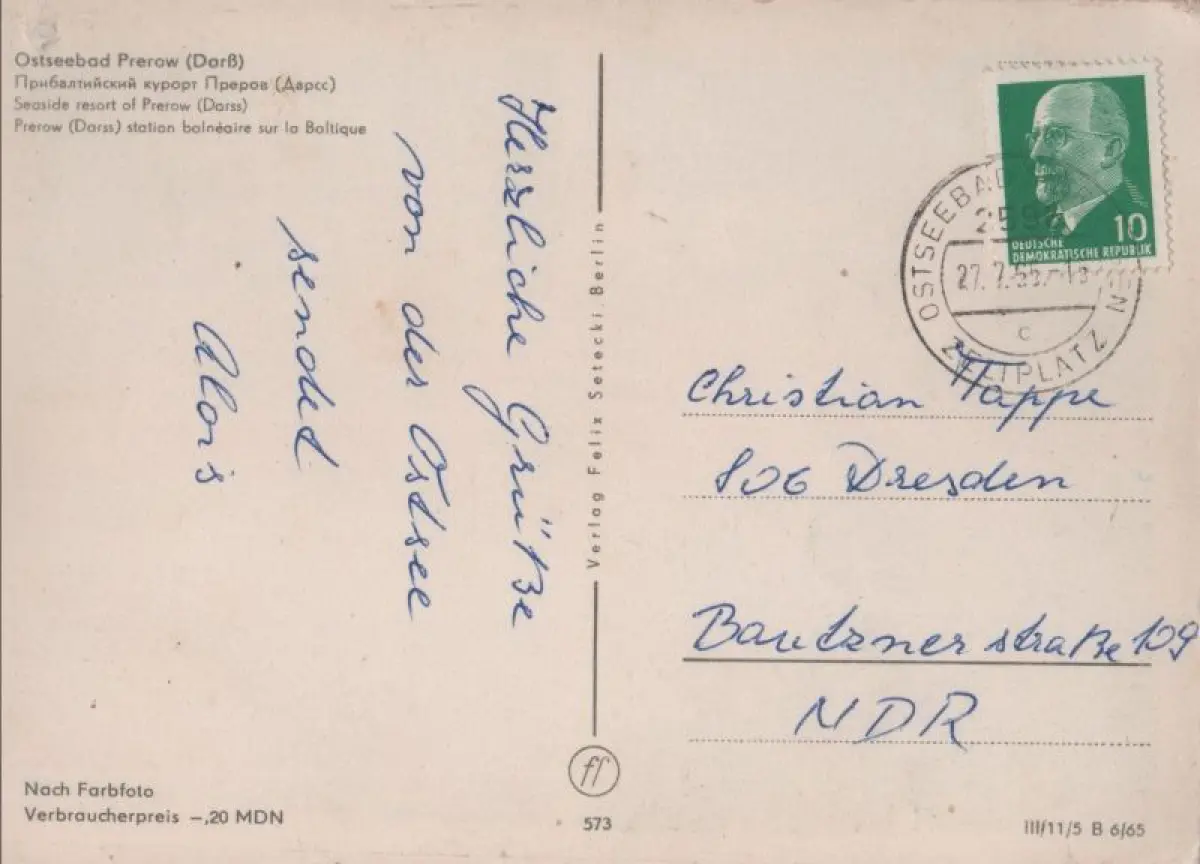 Ostseebad Prerow (Darß)
Прибалтийский курорт Преров (Дарсс)
Seaside resort of Prerow (Darss)
Prerow (Darss) station balnéaire sur la Baltique
Herzliche Grüße
von der Ostsee
sendet
Alois
Verlag Felix Setecki, Berlin
10
DEUTSCHE
DEMOKRATISCHE REPUBLIK
OSTSEEBAD
27.7.
c
ZELTPLATZ
Christian Tappe
806 Dresden
Bautzner straße 109
NDR
Nach Farbfoto
Verbraucherpreis –,20 MDN
ff
573
III/11/5 B 6/65